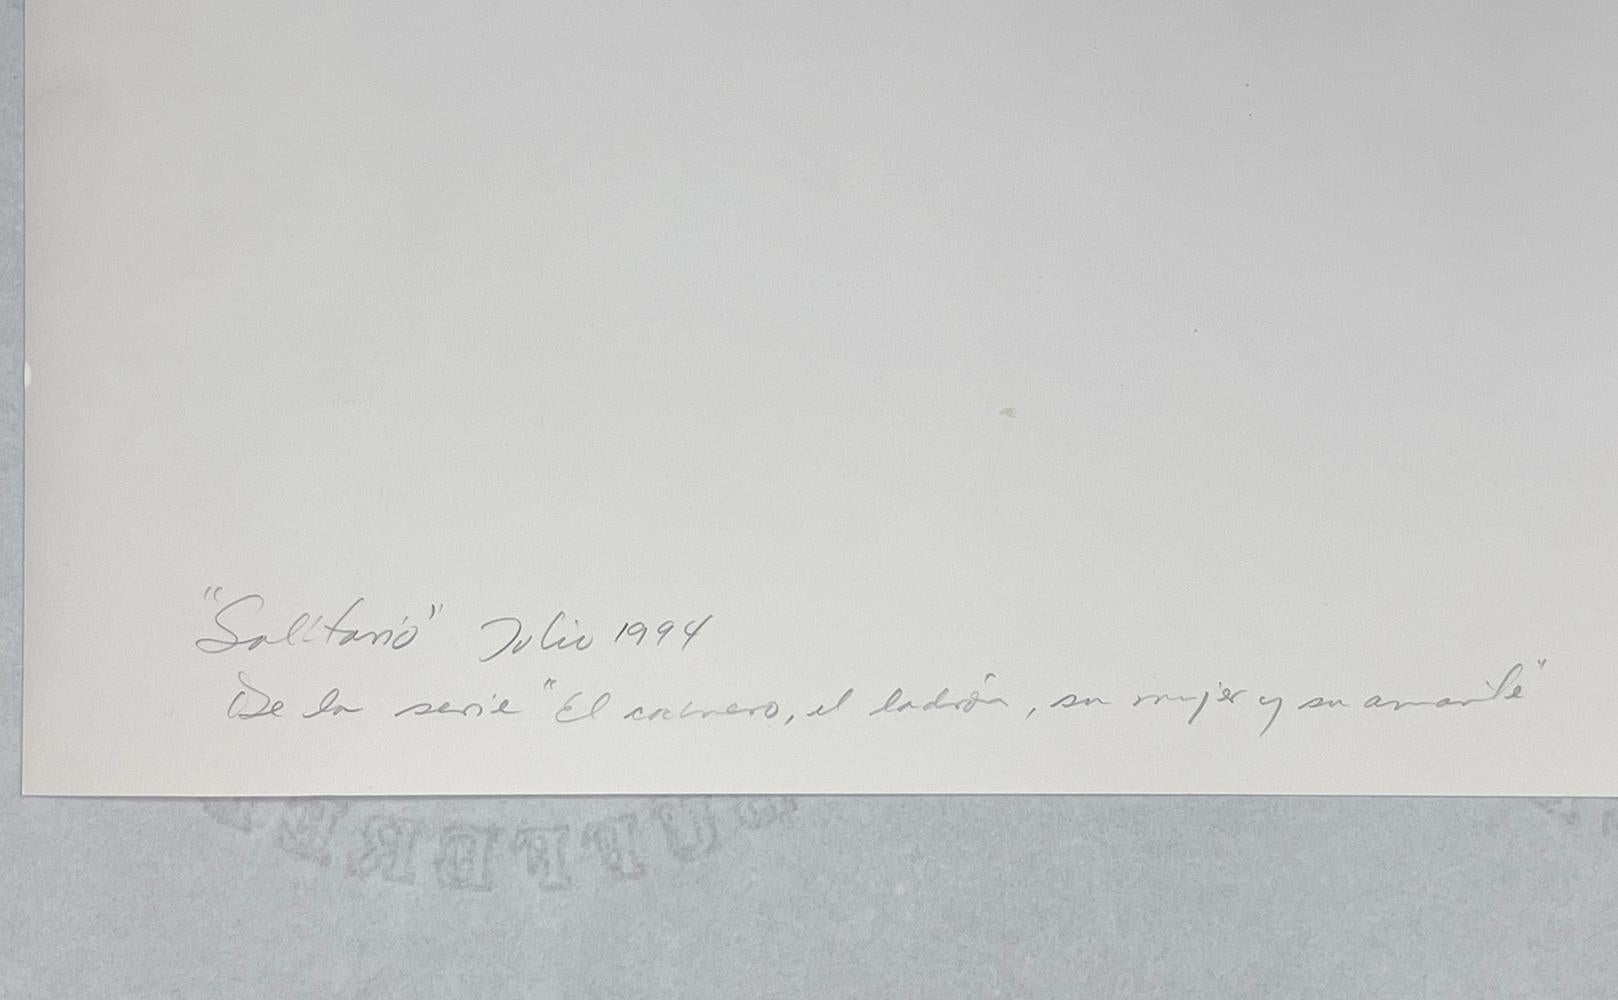 "Solitario" Julio 1994
De la serie "El cocinero, el ladrón, su mujer y su amante"